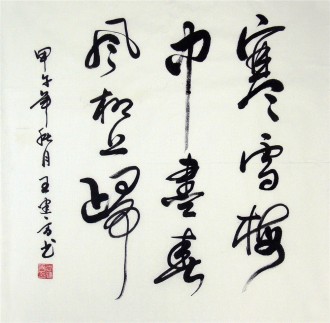 寒雪梅
中盡春
風柳上歸
甲午年秋月王建方书